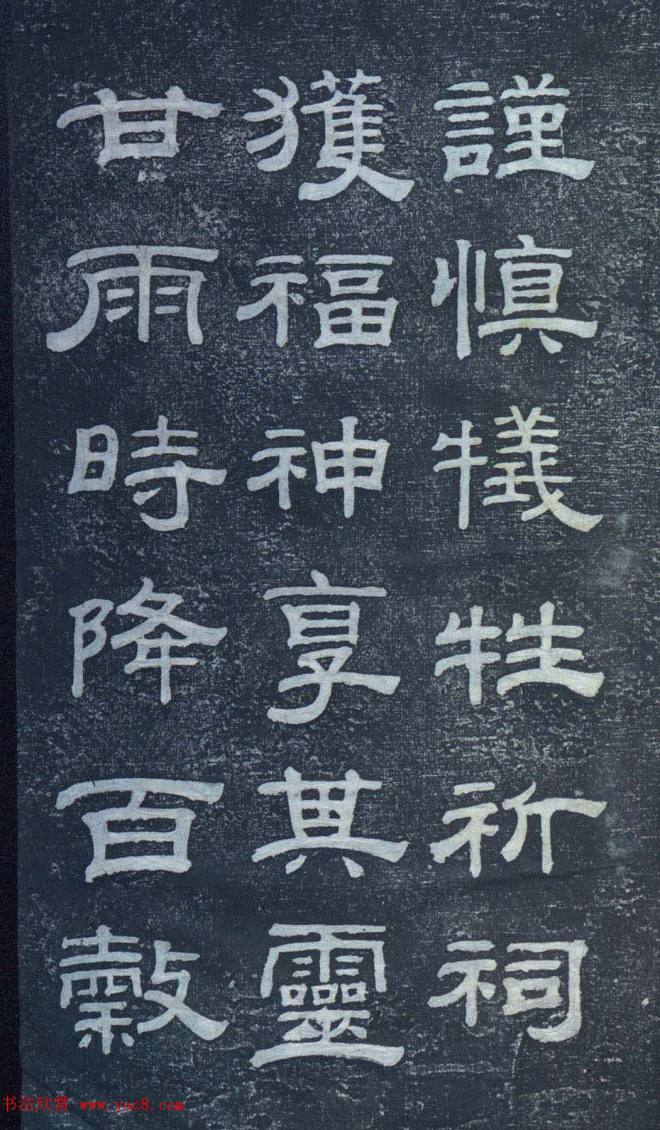 謹慎犧牲祈祠
獲福神享其靈
甘雨時降百穀
书法欣赏 www.yac8.com